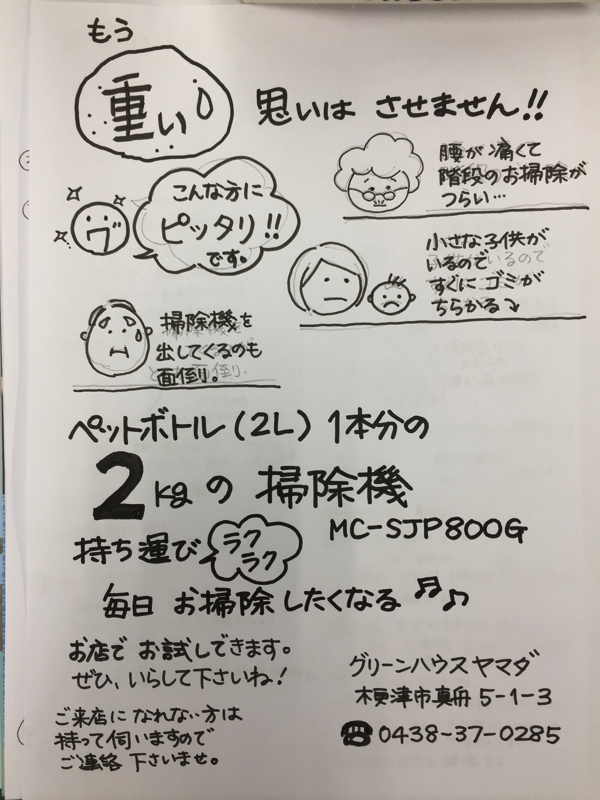 もう
重い 思いは させません!!
腰が痛くて
階段のお掃除が
つらい…
こんな方に
ピッタリ!!
です。
小さな子供が
いるので
すぐに ゴミが
ちらかる
掃除機を
出してくるのも
面倒。
ペットボトル(2L) 1本分の
2kgの 掃除機
MC-SJP800G
持ち運び ラクラク
毎日 お掃除したくなる ♬♪
お店で お試しできます。
ぜひ、いらして下さいね!
ご来店に なれない方は
持って伺いますので
ご連絡 下さいませ。
グリーンハウスヤマダ
木更津市真舟 5-1-3
☎0438-37-0285